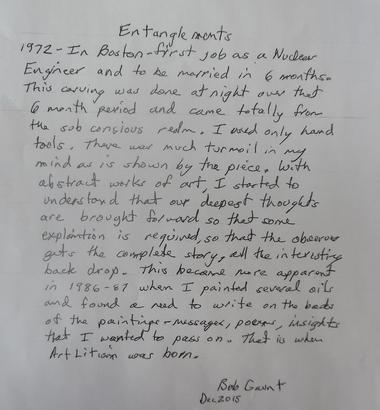 Entanglements
1972 - In Boston - first job as a Nuclear
Engineer and to be married in 6 months.
This carving was done at night over that
6 month period and came totally from
the sub consious realm. I used only hand
tools. There was much turmoil in my
mind as is shown by the piece. With
abstract works of art, I started to
understand that our deepest thoughts
are brought forward so that some
explantion is required, so that the observer
gets the complete story, all the interesting
back drop. This became more apparent
in 1986-87 when I painted several oils
and found a need to write on the backs
of the paintings - messages, poems, insights
that I wanted to pass on. That is when
Art Litism was born.
Bob Gaunt
Dec 2015